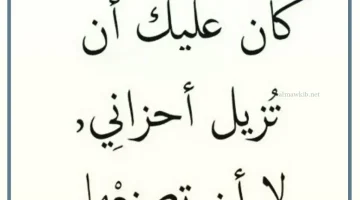 كان عليك أن
تُزيل أحزاني,
لا أن تصنعْها
almawkib.net